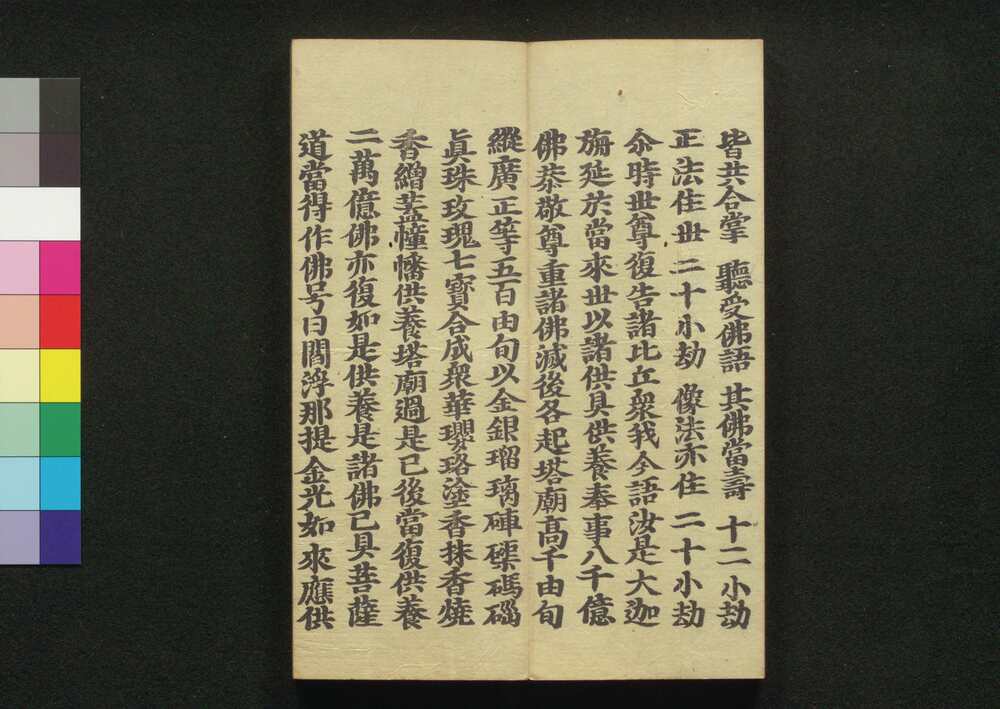 皆共合掌　聽受佛語　其佛當壽　十二小劫
正法住世　二十小劫　像法亦住　二十小劫
尒時世尊復告諸比丘衆我今語汝是大迦
旃延於當來世以諸供具供養奉事八千億
佛恭敬尊重諸佛滅後各起塔廟高千由旬
縱廣正等五百由旬以金銀瑠璃硨磲碼碯
眞珠玫瑰七寶合成衆華瓔珞塗香抹香燒
香繒蓋幢幡供養塔廟過是已後當復供養
二萬億佛亦復如是供養是諸佛已具菩薩
道當得作佛号曰閻浮那提金光如來應供